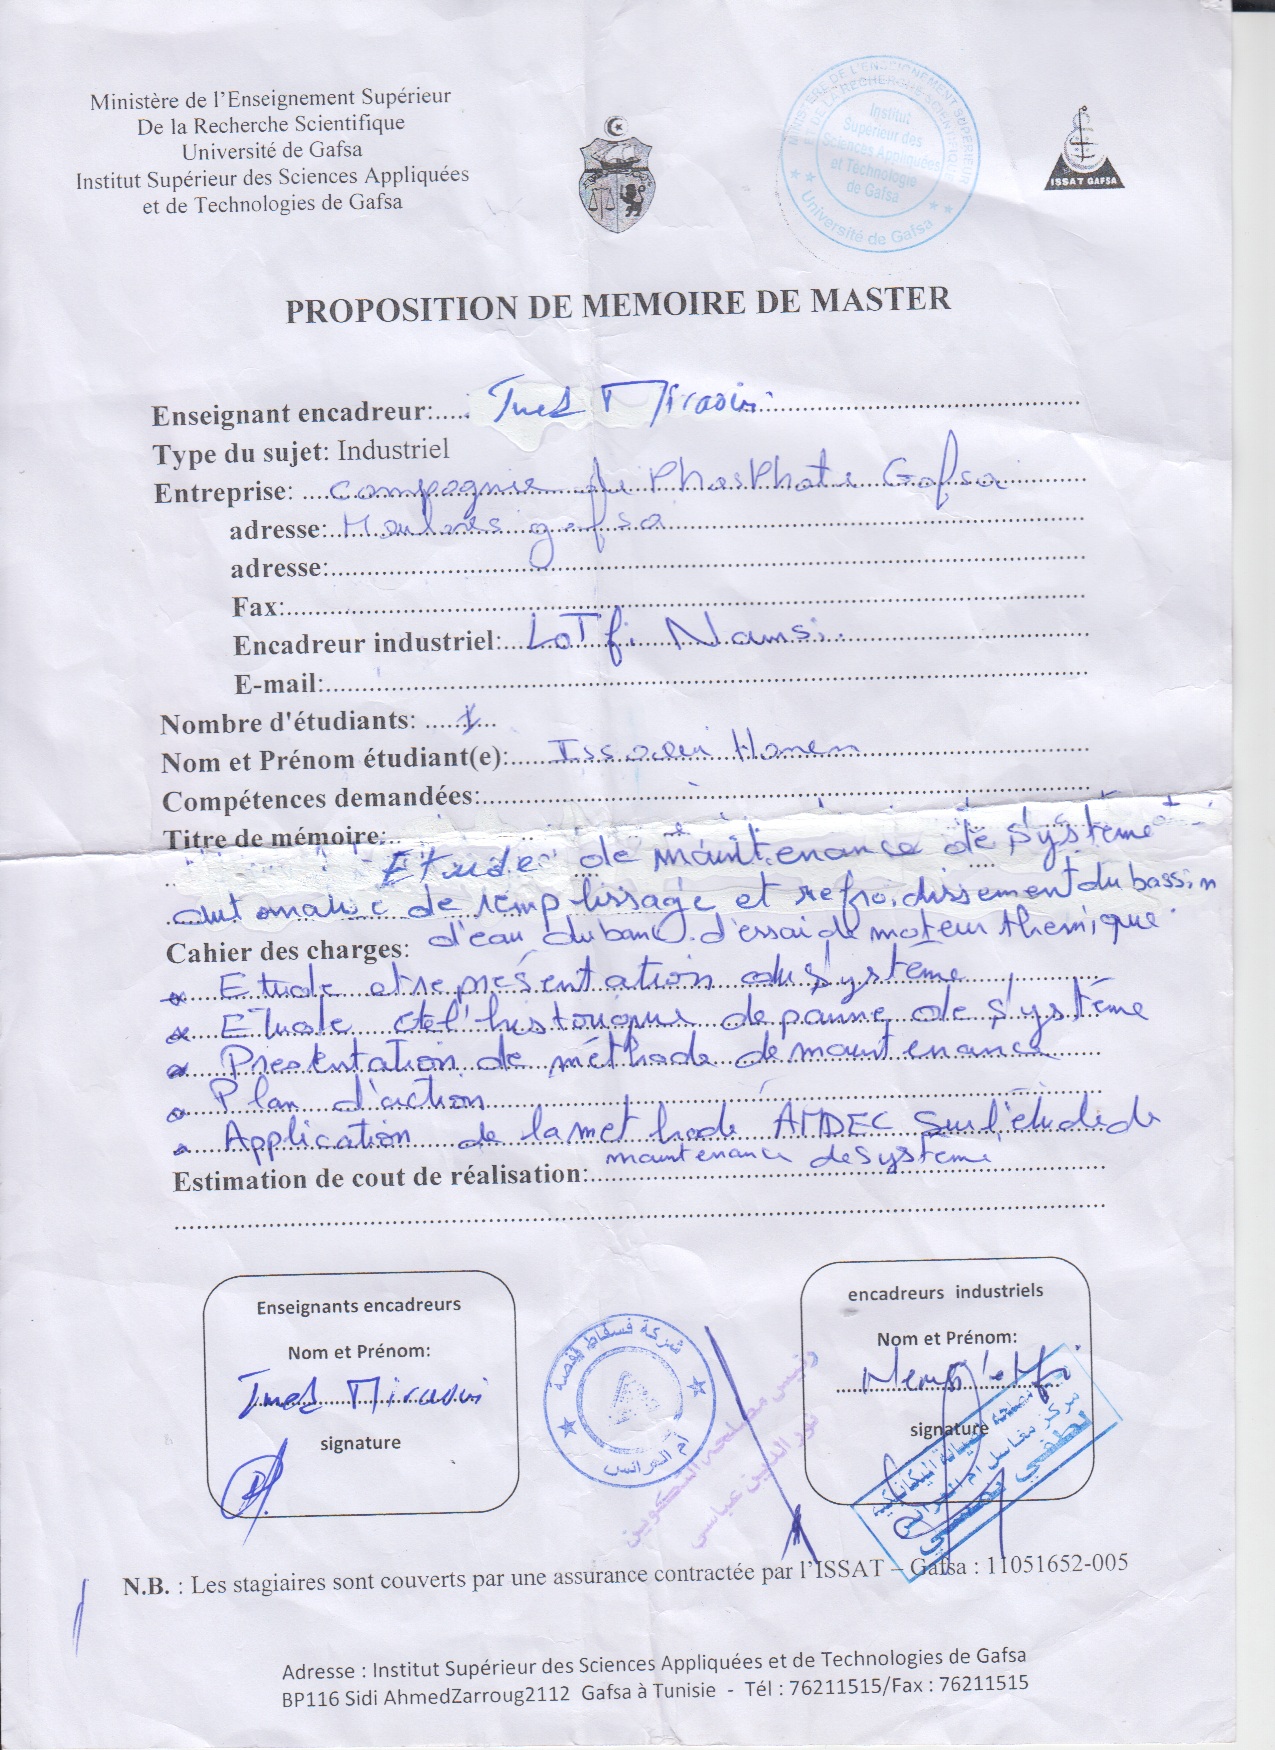 Ministère de l'Enseignement Supérieur
De la Recherche Scientifique
Université de Gafsa
Institut Supérieur des Sciences Appliquées
et de Technologies de Gafsa
MINISTERE DE L'ENSEIGNEMENT SUPERIEUR
ET DE LA RECHERCHE SCIENTIFIQUE
Institut
Supérieur des
Sciences Appliquées
et Technologie
de Gafsa
Université de Gafsa
ISSAT GAFSA
PROPOSITION DE MEMOIRE DE MASTER
Enseignant encadreur: Ines Miraoui
Type du sujet: Industriel
Entreprise: Compagnie de PhosPhate Gafsa
adresse: Moulares gafsa
adresse:
Fax:
Encadreur industriel: LoTfi Namsi
E-mail:
Nombre d'étudiants: 1
Nom et Prénom étudiant(e): Issaoui Hanen
Compétences demandées:
Titre de mémoire:
Etude de maintenance de système
automatic de remplissage et refroidissement du bassin
d'eau du banc d'essai de moteur thermique
Cahier des charges:
* Etude et représentation du système
* Etude de l'historique de panne de système
* Présentation de méthode de maintenance
* Plan d'action
* Application de la methode AMDEC sur l'étude de
maintenance de système
Estimation de cout de réalisation:
Enseignants encadreurs
Nom et Prénom:
Ines Miraoui
signature
شركة فسفاط قفصة
أم العرائس
رئيس مصلحة التكوين
نور الدين عباسي
encadreurs industriels
Nom et Prénom:
signature
N.B. : Les stagiaires sont couverts par une assurance contractée par l'ISSAT – Gafsa : 11051652-005
Adresse : Institut Supérieur des Sciences Appliquées et de Technologies de Gafsa
BP116 Sidi AhmedZarroug2112 Gafsa à Tunisie - Tél : 76211515/Fax : 76211515